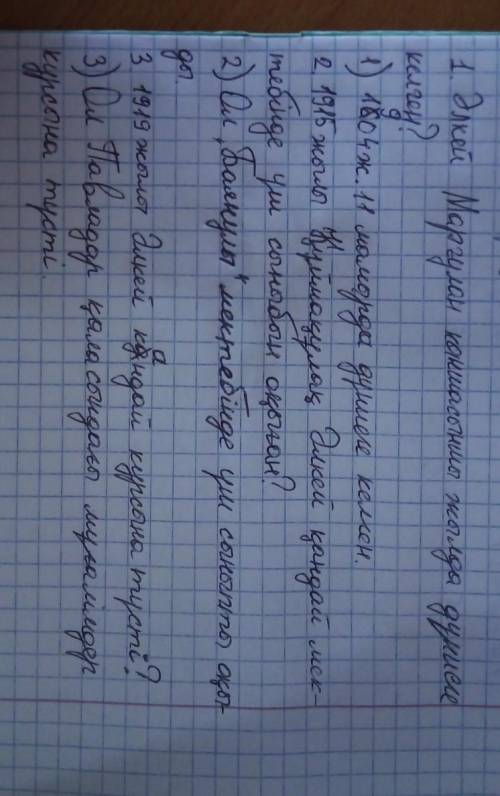 1. Әлкей Марғұлан қаншасыншы жылда дүниеге
келген?
1) 1804ж. 11 маморда дүниеге келген.
2. 1915 жылы Құймақұлақ Әлкей қандай мек-
тебінде үш сыныбын оқыған?
2) Ол „Баянқұлы" мектебінде үш сыныпты оқы-
ды.
3. 1919 жылы Әлкей қандай курсына түсті?
3) Ол Павлодар қаласындағы мұғалімдер
курсына түсті.